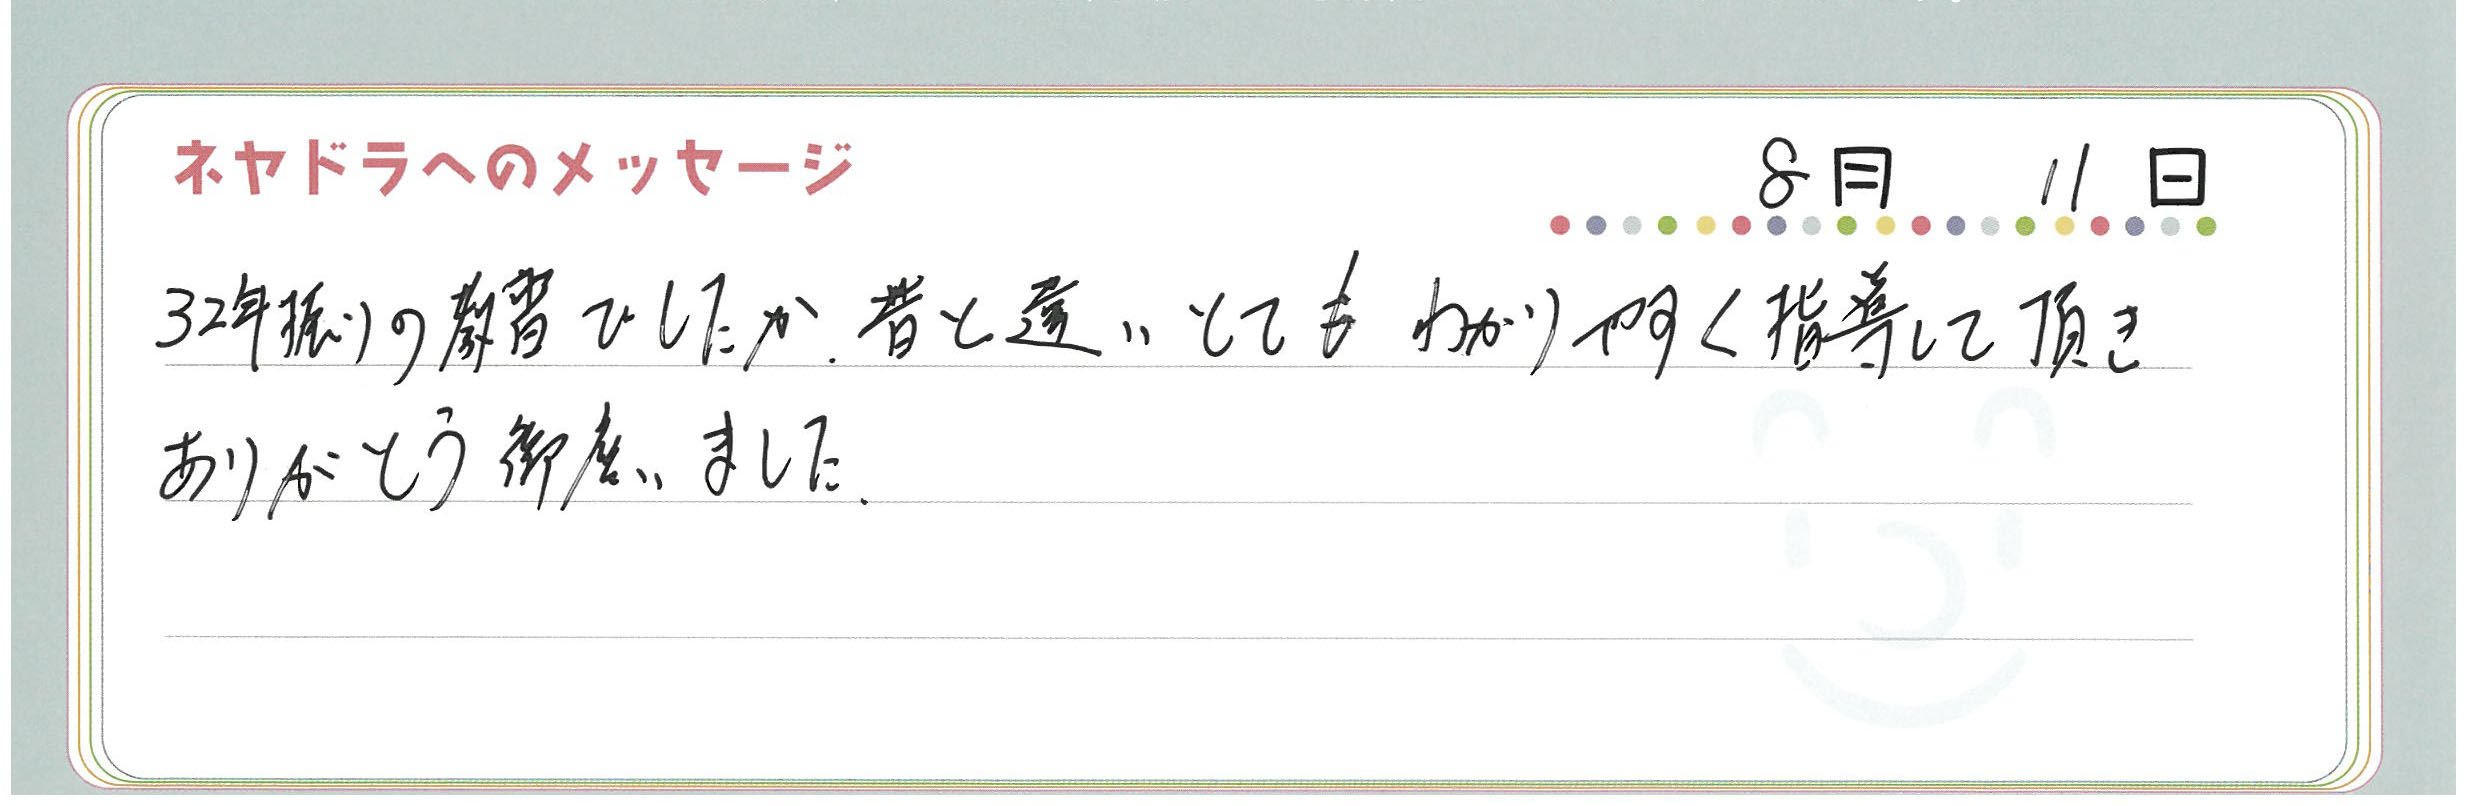 ネヤドラへのメッセージ
8月 11日
32年振りの教習でしたが、昔と違いとてもわかりやすく指導して頂き
ありがとう御座いました。